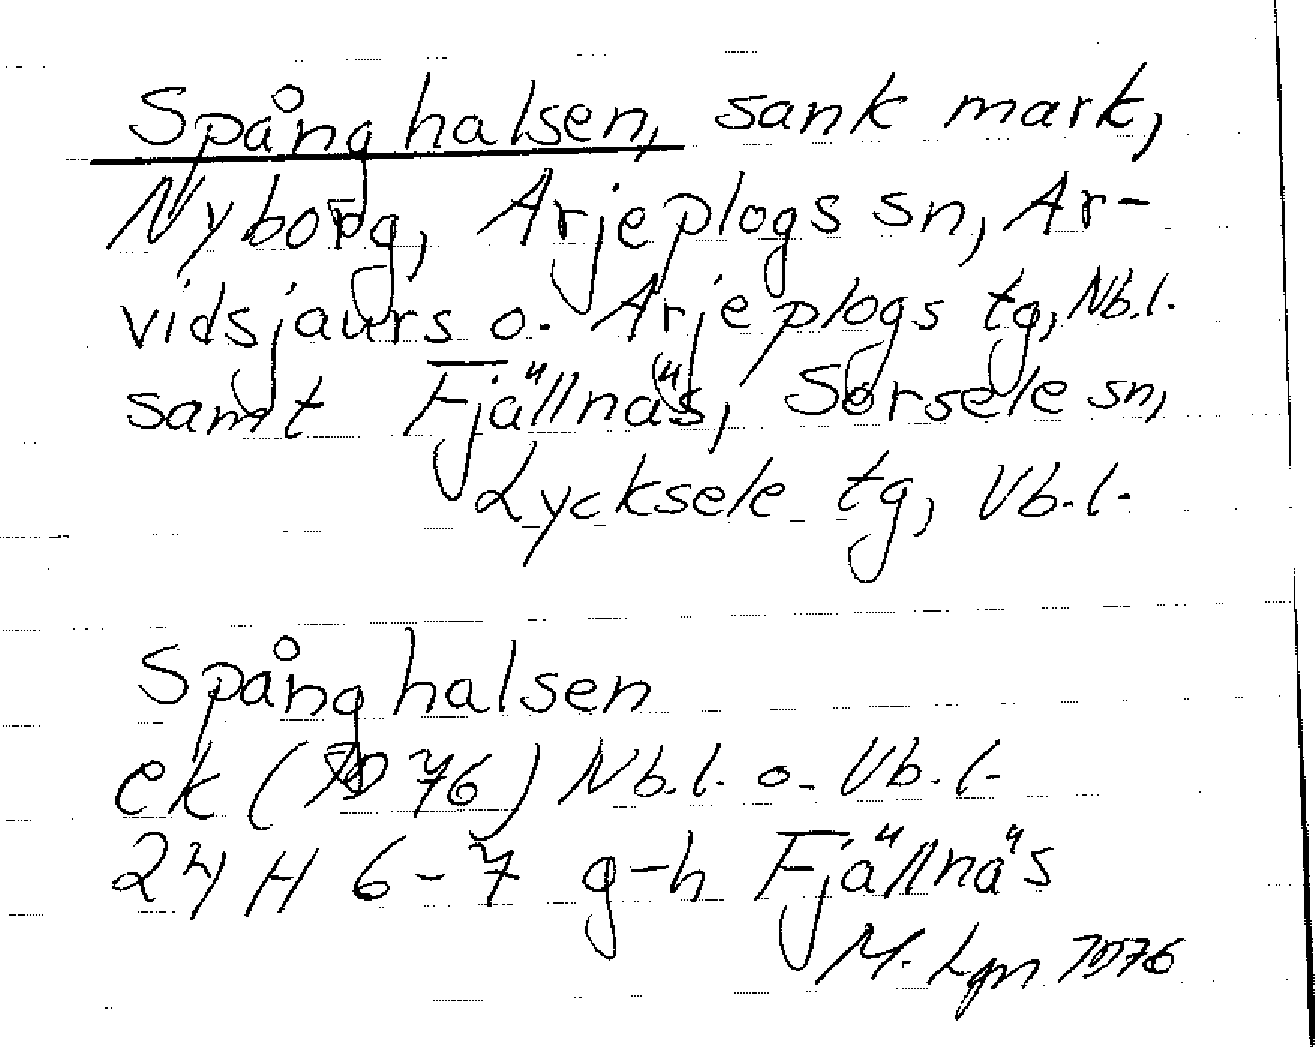 Spånghalsen, sank mark,
Nyborg, Arjeplogs sn, Ar-
vidsjaurs o. Arjeplogs tg, Nb.l.
samt Fjällnäs, Sorsele sn,
Lycksele tg, Vb.l.
Spånghalsen
ek (1976) Nb.l. o. Vb.l.
24 H 6-7 g-h Fjällnäs
M. Lgn 1976